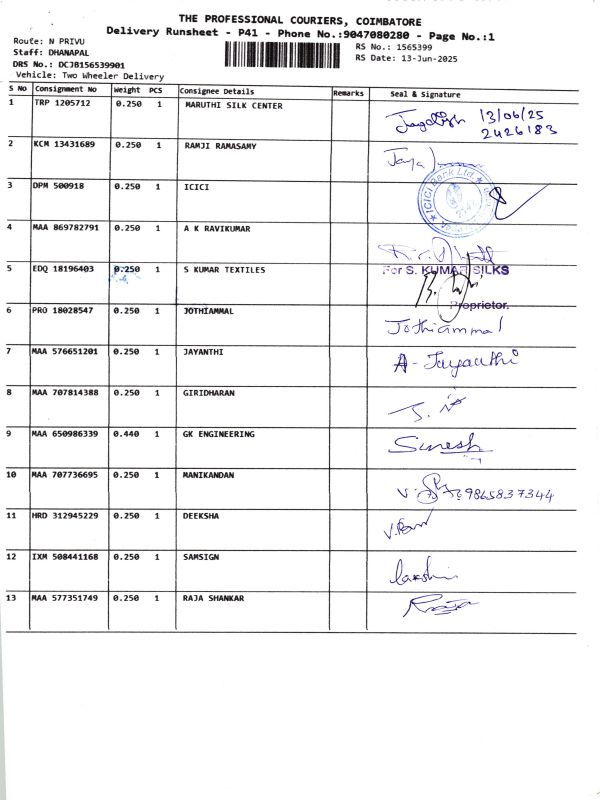 THE PROFESSIONAL COURIERS, COIMBATORE
Delivery Runsheet - P41 - Phone No.:9047080280 - Page No.:1
Route: N PRIVU
RS No.: 1565399
Staff: DHANAPAL
RS Date: 13-Jun-2025
DRS No.: DCJB156539901
Vehicle: Two Wheeler Delivery
S No Consignment No Weight PCS Consignee Details Remarks Seal & Signature
1 TRP 1205712 0.250 1 MARUTHI SILK CENTER 13/06/25
2426183
2 KCM 13431689 0.250 1 RAMJI RAMASAMY Jaya
3 DPM 500918 0.250 1 ICICI ICICI Bank Ltd.
4 MAA 869782791 0.250 1 A K RAVIKUMAR
5 EDQ 18196403 0.250 1 S KUMAR TEXTILES For S. KUMAR SILKS
Proprietor.
6 PRO 18028547 0.250 1 JOTHIAMMAL Jothiammal
7 MAA 576651201 0.250 1 JAYANTHI A- Jayanthi
8 MAA 707814388 0.250 1 GIRIDHARAN
9 MAA 650986339 0.440 1 GK ENGINEERING Suresh
10 MAA 707736695 0.250 1 MANIKANDAN 9865837344
11 HRD 312945229 0.250 1 DEEKSHA
12 IXM 508441168 0.250 1 SAMSIGN lakshi
13 MAA 577351749 0.250 1 RAJA SHANKAR Raja